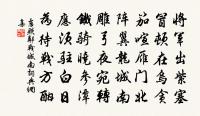 將軍出紫塞
冒頓在烏貪
笳喧雁門北
陣翼龍城南
雕弓夜宛轉
鐵騎曉參驔
應須駐白日
為待戰方酣
戰城南
集